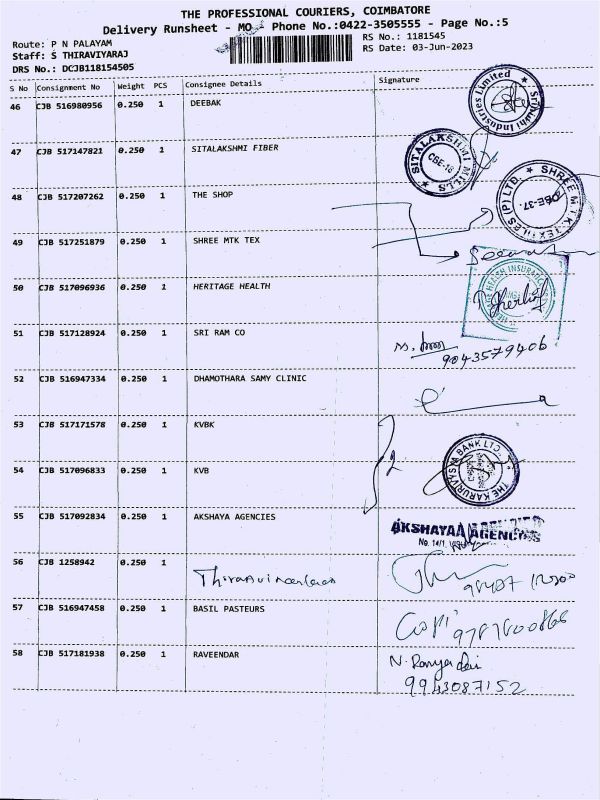 THE PROFESSIONAL COURIERS, COIMBATORE
Delivery Runsheet - MO - Phone No.:0422-3505555 - Page No.:5
Route: P N PALAYAM
RS No.: 1181545
Staff: S THIRAVIYARAJ
RS Date: 03-Jun-2023
DRS No.: DCJB118154505
S No Consignment No Weight PCS Consignee Details Signature
46 CJB 516980956 0.250 1 DEEBAK
Industries Limited
47 CJB 517147821 0.250 1 SITALAKSHMI FIBER
SITALAKSHMI MILLS
CBE-16
48 CJB 517207262 0.250 1 THE SHOP
SHREE MTK TEXTILES (P) LTD.
CBE-37.
49 CJB 517251879 0.250 1 SHREE MTK TEX
50 CJB 517096936 0.250 1 HERITAGE HEALTH
HEALTH INSURANCE
51 CJB 517128924 0.250 1 SRI RAM CO
9043579406
52 CJB 516947334 0.250 1 DHAMOTHARA SAMY CLINIC
53 CJB 517171578 0.250 1 KVBK
2
54 CJB 517096833 0.250 1 KVB
THE KARUR VYSYA BANK LTD.
55 CJB 517092834 0.250 1 AKSHAYA AGENCIES
AKSHAYAA AGENCIES
No. 14/1,
56 CJB 1258942 0.250 1
57 CJB 516947458 0.250 1 BASIL PASTEURS
Gopi
58 CJB 517181938 0.250 1 RAVEENDAR
9943087152